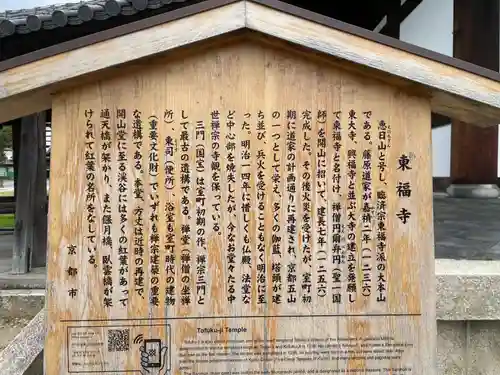 東福寺
恵日山と号し、臨済宗東福寺派の大本山
である。藤原道家が嘉禎二年(一二三六)
東大寺、興福寺と並ぶ大寺の建立を発願し
て東福寺と名付け、禅僧円爾弁円(聖一国
師)を開山に招いて、建長七年(一二五六)
完成した。その後火災を受けたが、室町初
期に道家の計画通りに再建され、京都五山
の一つとして栄え、多くの伽藍、塔頭が建
ち並び、兵火を受けることもなく明治に至
った。明治一四年に惜しくも仏殿、法堂な
ど中心部を焼失したが、今なお堂々たる中
世禅宗寺院の寺観を保っている。
三門(国宝)は室町初期の作、禅宗三門と
して最古の遺構である。禅堂(坐禅の僧
所)、東司(便所)、浴室も室町時代の建物
(重要文化財)でいずれも禅宗建築の重要
な遺構である。本堂、方丈は近時の再建で、
開山堂に至る渓谷には多くの紅葉があって
通天橋が架り、また偃月橋、臥雲橋が架
けられて紅葉の名所をなしている。
京都市
Tofuku-ji Temple